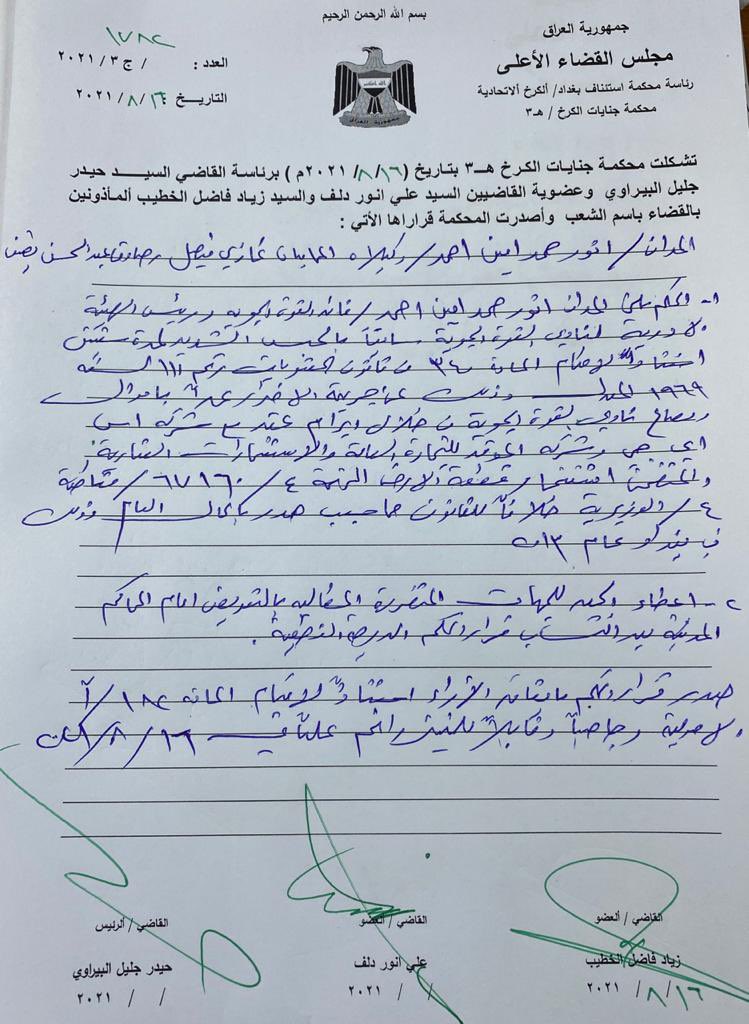 بسم الله الرحمن الرحيم
جمهورية العراق
مجلس القضاء الأعلى
رئاسة محكمة استئناف بغداد/ ألكرخ ألاتحادية
محكمة جنايات الكرخ / هـ٣
العدد : ١٧٨٤ / ج ٣/ ٢٠٢١
التاريـــخ : ١٦/ ٨/ ٢٠٢١
جمهورية العراق
تشكلت محكمة جنايات الكرخ هـ٣ بتاريخ (١٦/ ٨/ ٢٠٢١م ) برئاسة القاضي السيـــد حيدر
جليل البيراوي وعضوية القاضيين السيد علي انور دلف والسيد زياد فاضل الخطيب ألمأذونين
بالقضاء باسم الشعب وأصدرت المحكمة قراراها الأتي :
المدان/ انور حمد امين احمد/ وكيلاه المحاميان غازي فيصل وصادق عبد الحسن
١- الحكم على المدان انور حمد امين احمد/ قائد القوة الجوية ورئيس الهيئة
الادارية لنادي القوة الجوية سابقاً بالحبس الشديد لمدة سنتين
استناداً لاحكام المادة ٣٤٠ من قانون العقوبات رقم ١١١ لسنة
١٩٦٩ المعدل وذلك عن جريمة الاضرار عمداً باموال
ومصالح نادي القوة الجوية من خلال ابرام عقد مع شركة اس
اي جي وشركة الموقد للتجارة العامة والاستثمارات العقارية
والمتضمن استثمار قطعة الارض المرقمة ٤/ ٦٧١٦٠/ مقاطعة
٤/ الوزيرية خلافاً للقانون مما سبب هدر بالمال العام وذلك
في عام ٢٠١٣
٢- اعطاء الحق للجهات المتضررة المطالبة بالتعويض امام المحاكم
المدنية بعد اكتساب قرار الحكم الدرجة القطعية.
صدر قرار الحكم باتفاق الآراء استناداً لاحكام المادة ١٨٢/ أ
الاصولية وجاهياً وقابلاً للتمييز وافهم علناً في ١٦/ ٨/ ٢٠٢١
القاضي / ألعضو
زياد فاضل الخطيب
١٦/ ٨/ ٢٠٢١
القاضي / العضو
علي انور دلف
/ / ٢٠٢١
القاضي / ألرئيس
حيدر جليل البيراوي
/ / ٢٠٢١